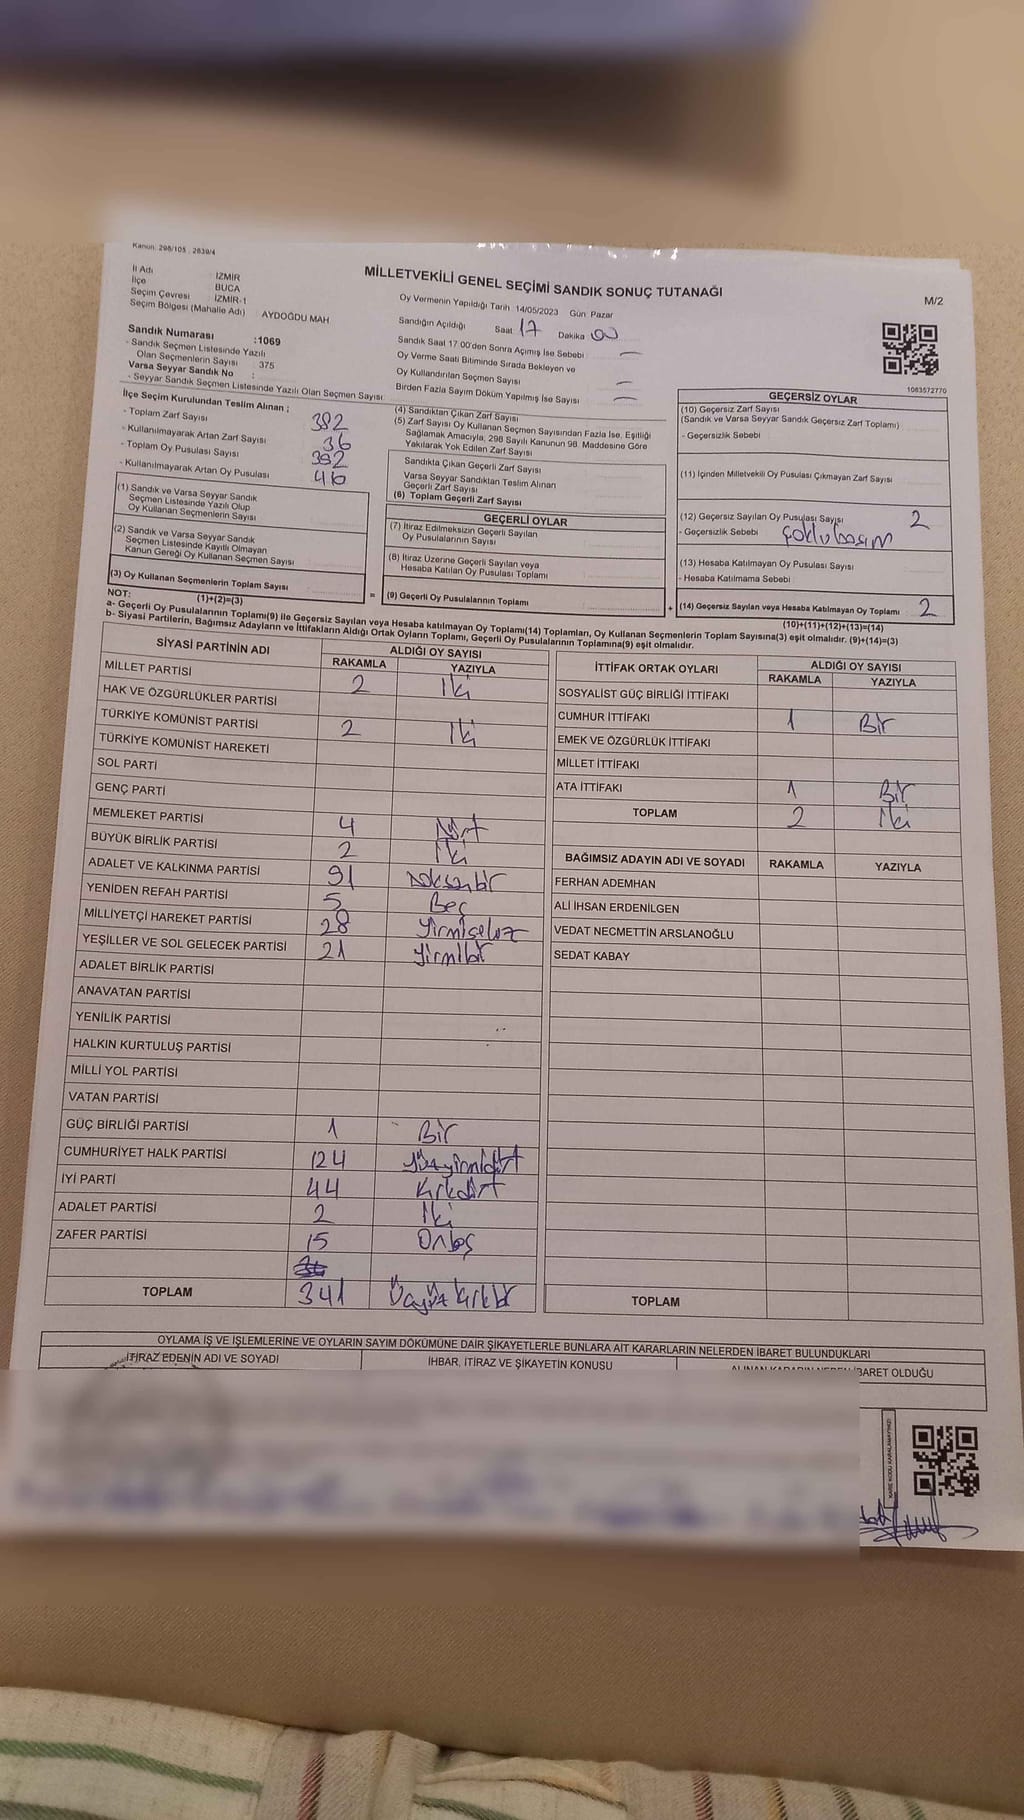 Kanun: 298/105 , 2839/4
MİLLETVEKİLİ GENEL SEÇİMİ SANDIK SONUÇ TUTANAĞI
M/2
İl Adı : İZMİR
İlçe : BUCA
Seçim Çevresi : İZMİR-1
Seçim Bölgesi (Mahalle Adı) : AYDOĞDU MAH
Oy Vermenin Yapıldığı Tarih 14/05/2023 Gün Pazar
Sandığın Açıldığı Saat 17 Dakika 00
Sandık Saat 17.00'den Sonra Açımış İse Sebebi : —
Oy Verme Saati Bitiminde Sırada Bekleyen ve
Oy Kullandırılan Seçmen Sayısı : —
Birden Fazla Sayım Döküm Yapılmış İse Sayısı : —
Sandık Numarası :1069
- Sandık Seçmen Listesinde Yazılı
Olan Seçmenlerin Sayısı : 375
Varsa Seyyar Sandık No :
- Seyyar Sandık Seçmen Listesinde Yazılı Olan Seçmen Sayısı:
1063572770
İlçe Seçim Kurulundan Teslim Alınan ;
- Toplam Zarf Sayısı 382
- Kullanılmayarak Artan Zarf Sayısı : 36
- Toplam Oy Pusulası Sayısı : 382
- Kullanılmayarak Artan Oy Pusulası : 46
(1) Sandık ve Varsa Seyyar Sandık
Seçmen Listesinde Yazılı Olup
Oy Kullanan Seçmenlerin Sayısı
(2) Sandık ve Varsa Seyyar Sandık
Seçmen Listesinde Kayıtlı Olmayan
Kanun Gereği Oy Kullanan Seçmen Sayısı
(3) Oy Kullanan Seçmenlerin Toplam Sayısı
(1)+(2)=(3)
(4) Sandıktan Çıkan Zarf Sayısı
(5) Zarf Sayısı Oy Kullanan Seçmen Sayısından Fazla İse, Eşitliği
Sağlamak Amacıyla, 298 Sayılı Kanunun 98. Maddesine Göre
Yakılarak Yok Edilen Zarf Sayısı
Sandıkta Çıkan Geçerli Zarf Sayısı
Varsa Seyyar Sandıktan Teslim Alınan
Geçerli Zarf Sayısı
(6) Toplam Geçerli Zarf Sayısı
GEÇERLİ OYLAR
(7) İtiraz Edilmeksizin Geçerli Sayılan
Oy Pusulalarının Sayısı
(8) İtiraz Üzerine Geçerli Sayılan veya
Hesaba Katılan Oy Pusulası Toplamı
= (9) Geçerli Oy Pusulalarının Toplamı
GEÇERSİZ OYLAR
(10) Geçersiz Zarf Sayısı
(Sandık ve Varsa Seyyar Sandık Geçersiz Zarf Toplamı)
- Geçersizlik Sebebi :
(11) İçinden Milletvekili Oy Pusulası Çıkmayan Zarf Sayısı
(12) Geçersiz Sayılan Oy Pusulası Sayısı 2
- Geçersizlik Sebebi : çoklubasım
(13) Hesaba Katılmayan Oy Pusulası Sayısı
- Hesaba Katılmama Sebebi :
+ (14) Geçersiz Sayılan veya Hesaba Katılmayan Oy Toplamı 2
(10)+(11)+(12)+(13)=(14)
NOT:
a- Geçerli Oy Pusulalarının Toplamı(9) ile Geçersiz Sayılan veya Hesaba katılmayan Oy Toplamı(14) Toplamları, Oy Kullanan Seçmenlerin Toplam Sayısına(3) eşit olmalıdır. (9)+(14)=(3)
b- Siyasi Partilerin, Bağımsız Adayların ve İttifakların Aldığı Ortak Oyların Toplamı, Geçerli Oy Pusulalarının Toplamına(9) eşit olmalıdır.
SİYASİ PARTİNİN ADI ALDIĞI OY SAYISI
RAKAMLA YAZIYLA
MİLLET PARTİSİ 2 İki
HAK VE ÖZGÜRLÜKLER PARTİSİ
TÜRKİYE KOMÜNİST PARTİSİ 2 İki
TÜRKİYE KOMÜNİST HAREKETİ
SOL PARTİ
GENÇ PARTİ
MEMLEKET PARTİSİ 4 Dört
BÜYÜK BİRLİK PARTİSİ 2 İki
ADALET VE KALKINMA PARTİSİ 91 Doksanbir
YENİDEN REFAH PARTİSİ 5 Beş
MİLLİYETÇİ HAREKET PARTİSİ 28 Yirmisekiz
YEŞİLLER VE SOL GELECEK PARTİSİ 21 Yirmibir
ADALET BİRLİK PARTİSİ
ANAVATAN PARTİSİ
YENİLİK PARTİSİ
HALKIN KURTULUŞ PARTİSİ
MİLLİ YOL PARTİSİ
VATAN PARTİSİ
GÜÇ BİRLİĞİ PARTİSİ 1 Bir
CUMHURİYET HALK PARTİSİ 124 Yüzyirmidört
İYİ PARTİ 44 Kırkdört
ADALET PARTİSİ 2 İki
ZAFER PARTİSİ 15 Onbeş
TOPLAM 341 Üçyüz kırkbir
İTTİFAK ORTAK OYLARI ALDIĞI OY SAYISI
RAKAMLA YAZIYLA
SOSYALİST GÜÇ BİRLİĞİ İTTİFAKI
CUMHUR İTTİFAKI 1 Bir
EMEK VE ÖZGÜRLÜK İTTİFAKI
MİLLET İTTİFAKI
ATA İTTİFAKI 1 Bir
TOPLAM 2 İki
BAĞIMSIZ ADAYIN ADI VE SOYADI RAKAMLA YAZIYLA
FERHAN ADEMHAN
ALİ İHSAN ERDENİLGEN
VEDAT NECMETTİN ARSLANOĞLU
SEDAT KABAY
TOPLAM
OYLAMA İŞ VE İŞLEMLERİNE VE OYLARIN SAYIM DÖKÜMÜNE DAİR ŞİKAYETLERLE BUNLARA AİT KARARLARIN NELERDEN İBARET BULUNDUKLARI
İTİRAZ EDENİN ADI VE SOYADI İHBAR, İTİRAZ VE ŞİKAYETİN KONUSU ALINAN KARARIN NEDEN İBARET OLDUĞU
KARE KODU KARALAMAYINIZ!